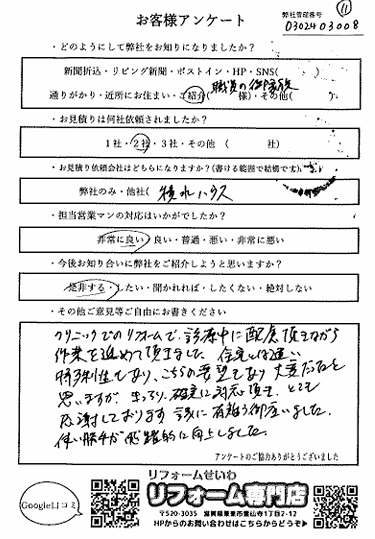 ⑪
お客様アンケート
弊社管理番号
0302403008
・どのようにして弊社をお知りになりましたか？
新聞折込・リビング新聞・ポストイン・HP・SNS(
職員の御家族
通りがかり・近所にお住まい・ご紹介( 様)・その他( )
・お見積りは何社依頼されましたか？
1社・2社・3社・その他 ( 社)
・お見積り依頼会社はどちらになりますか？(書ける範囲で結構です)
弊社のみ・他社( 積水ハウス
・担当営業マンの対応はいかがでしたか？
非常に良い・良い・普通・悪い・非常に悪い
・今後お知り合いに弊社をご紹介しようと思いますか？
是非する・したい・聞かれれば・したくない・絶対しない
・その他ご意見等ご自由にお書きください
クリニックでのリフォームで、診療中に配慮頂きながら
作業を進めて頂きました。住宅とは違い
特殊性もあり、こちらの要望もあり大変だったと
思いますが、きっちり、確実に対応頂き、とても
感謝しております。誠に有難う御座いました。
使い勝手が飛躍的に向上しました。
アンケートのご協力ありがとうございました
Google口コミ
リフォームせいわ
リフォーム専門店
〒520-3035 滋賀県栗東市霊仙寺1丁目2-12
HPからのお問い合わせはこちらからどうぞ▶